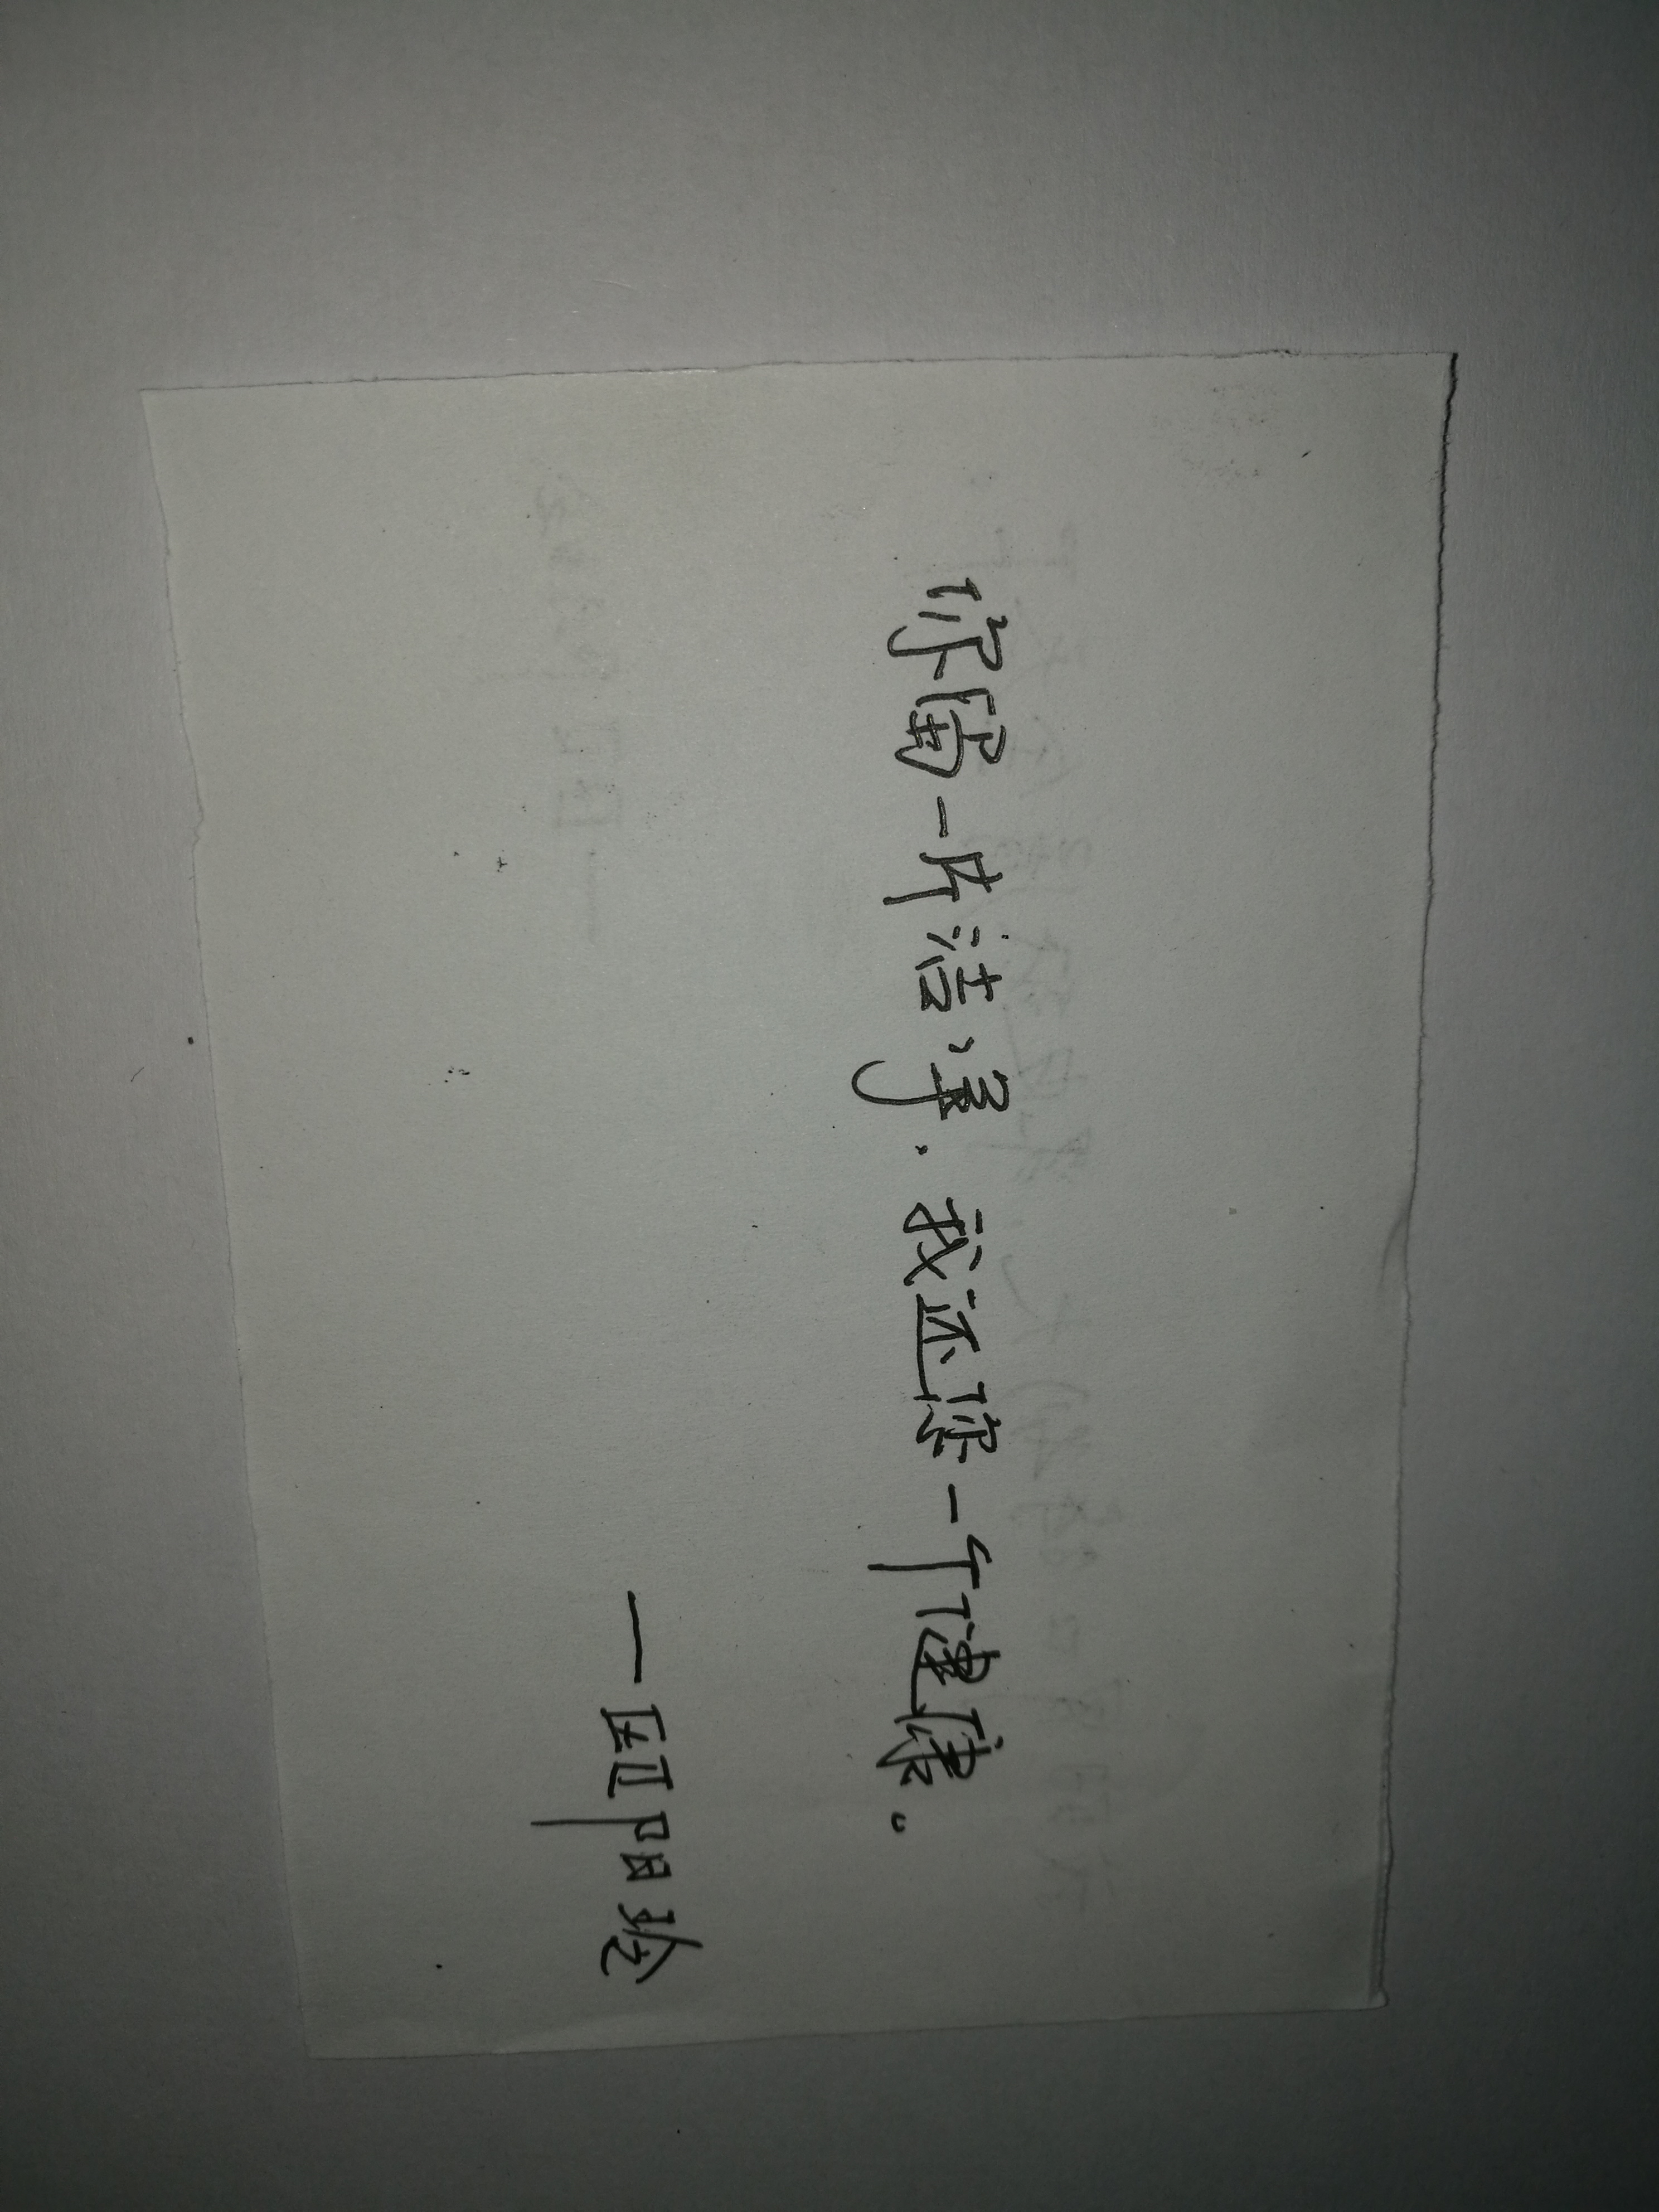 你留一片洁净.我还您一个健康。
—欧阳玲